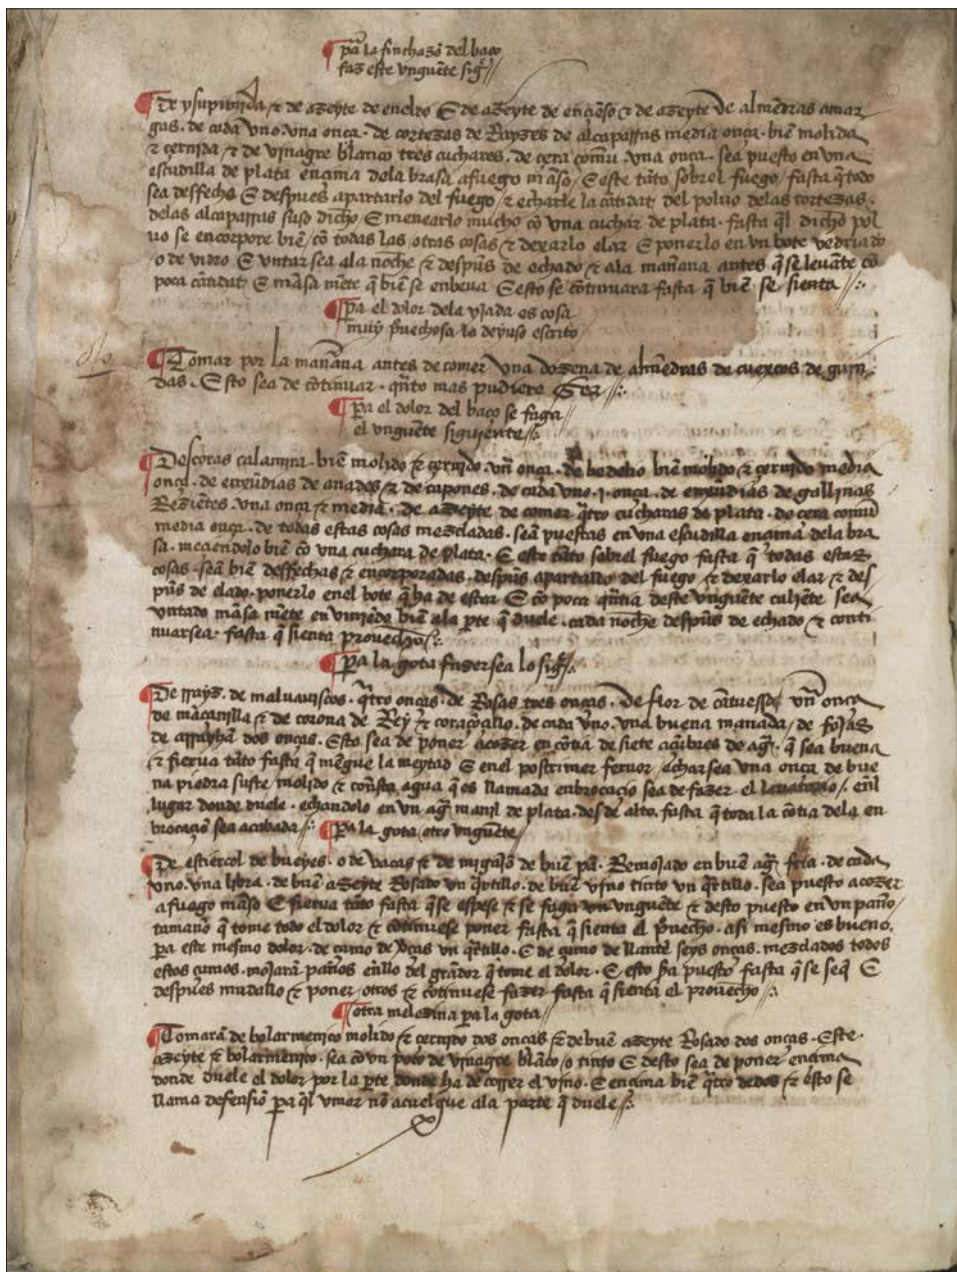 pa la finchazō del baço
faz este vnguēte sigͥ //
De ysupumida, & de azeyte de eneldo E de azeyte de ençēso & de azeyte de almēdras amar
gas. de cada vno. vna onça. de cortezas de Rayzes de alcaparras media onça. biē molida
& çernida / & de vinagre blanco tres cuchares. de çera comū vna onça. sea puesto en vna
escudilla de plata ençima dela brasa afuego māso / E este tāto sobrel fuego / fasta q̄ todo
sea desfecho E despues apartarlo del fuego / & echarle la cātidat del poluo delas cortezas.
delas alcaparras suso dicho / E menearlo mucho cō vna cuchar de plata. fasta q̄l dicho pol
uo se encorpore biē / cō todas las otras cosas / & dexarlo elar E ponerlo en vn bote vedriado
/ o de vidro E vntar sea ala noche & despūs de echado & ala mañana antes q̄ se leuāte cō
poca cātidat / E māsa mēte q̄ biē se enbeua E esto se cōtinuara fasta q̄ biē se sienta //:
pa el dolor dela yjada es cosa
muy puechosa lo deyuso escrito
Tomar por la mañana antes de comer vna dozena de almēdras de cuexcos de guin
das. Esto sea de cōtinuar. q̄nto mas pudiere Ser //:
pa el dolor del baço se faga
el vnguēte siguiente //:
De scoras calamita. biē molido & çernido. vn̄ onça. de bedelio biē molido & çernido media
onça. de enxūdias de anades & de capones. de cada vno .j. onça. de enxūdias de gallinas
Rezientes. vna onça & media. de azeyte de comer q̄tro cucharas de plata. de çera comū
media onça. de todas estas cosas mezcladas. seā puestas en vna escudilla ençima dela bra
sa. meçiendolo biē cō vna cuchara de plata. E este tāto sobrel fuego fasta q̄ todas estas
cosas. seā biē desfechas & encorporadas. despūs apartallo del fuego & dexarlo elar & des
pūs de elado. ponerlo enel bote q̄ ha de estar E cō poca q̄ntia deste vnguēte caliēte sea
vntado māsa mēte biē ala pte q̄ duele. cada noche despūs de echado & conti
nuarsea. fasta q̄ sienta prouecho //:
pa la gota fazersea lo sigͥ //:
De rrayz. de maluauiscos. q̄tro onças. de Rosas tres onças. De flor de cātuesso vn̄ onça
de māçanilla & de corona de Rey & de cada vno. vna buena manada / de fojas
de arrayhā dos onças. Esto sea de poner acozer en cōtia de siete açūbres de ag̃. q̄ sea buena
& fierua tāto fasta q̄ mēgue la meytad E enel postrimer feruor / echarsea vna onça de bue
na piedra sufre / molido & cō esta agua q̄ es llamada enbrocaçio sea de fazer el lauatorio /. enl
lugar donde duele. echandolo en vn ag̃ manil de plata. desde alto. fasta q̄ toda la cōtia dela en
brocaçiō sea acabada //: pa la gota otro vnguēte //
De estiercol de bueyes. o de vacas & de migajō de buē pā. Remojado en buē ag̃ fria. de cada
vno. vna libra. de buē azeyte Rosado vn q̄rtillo. de buē vino tinto vn q̄rtillo. sea puesto acozer
a fuego māso E fierua tāto fasta q̄ se espese & se faga vn vnguēte & desto puesto en vn paño /
tamaño q̄ tome todo el dolor & cōtinuese poner fasta q̄ sienta el puecho. asi mesmo es bueno.
pa este mesmo dolor. de çumo de vn q̄rtillo. E de çumo de llantē seys onças. mezclados todos
estos çumos. mojarā paños enllo del grādor q̄ tome el dolor. E esto sea puesto fasta q̄ se seq̄ E
despues mudallo & poner otros & cōtinuese fazer fasta q̄ sienta el prouecho //:
otra melezina pa la gota //
Tomarā de bolarmenico molido & çernido dos onças & de buē azeyte Rosado dos onças. Este.
azeyte & bolarmenico. sea cō vn poco de vinagre blāco / o tinto E desto sea de poner ençima
donde duele el dolor por la pte donde ha de correr el vmor. E ençima biē q̄tro dedos & esto se
llama defensiō pa q̄l vmor nō acuelgue ala parte q̄ duele //: